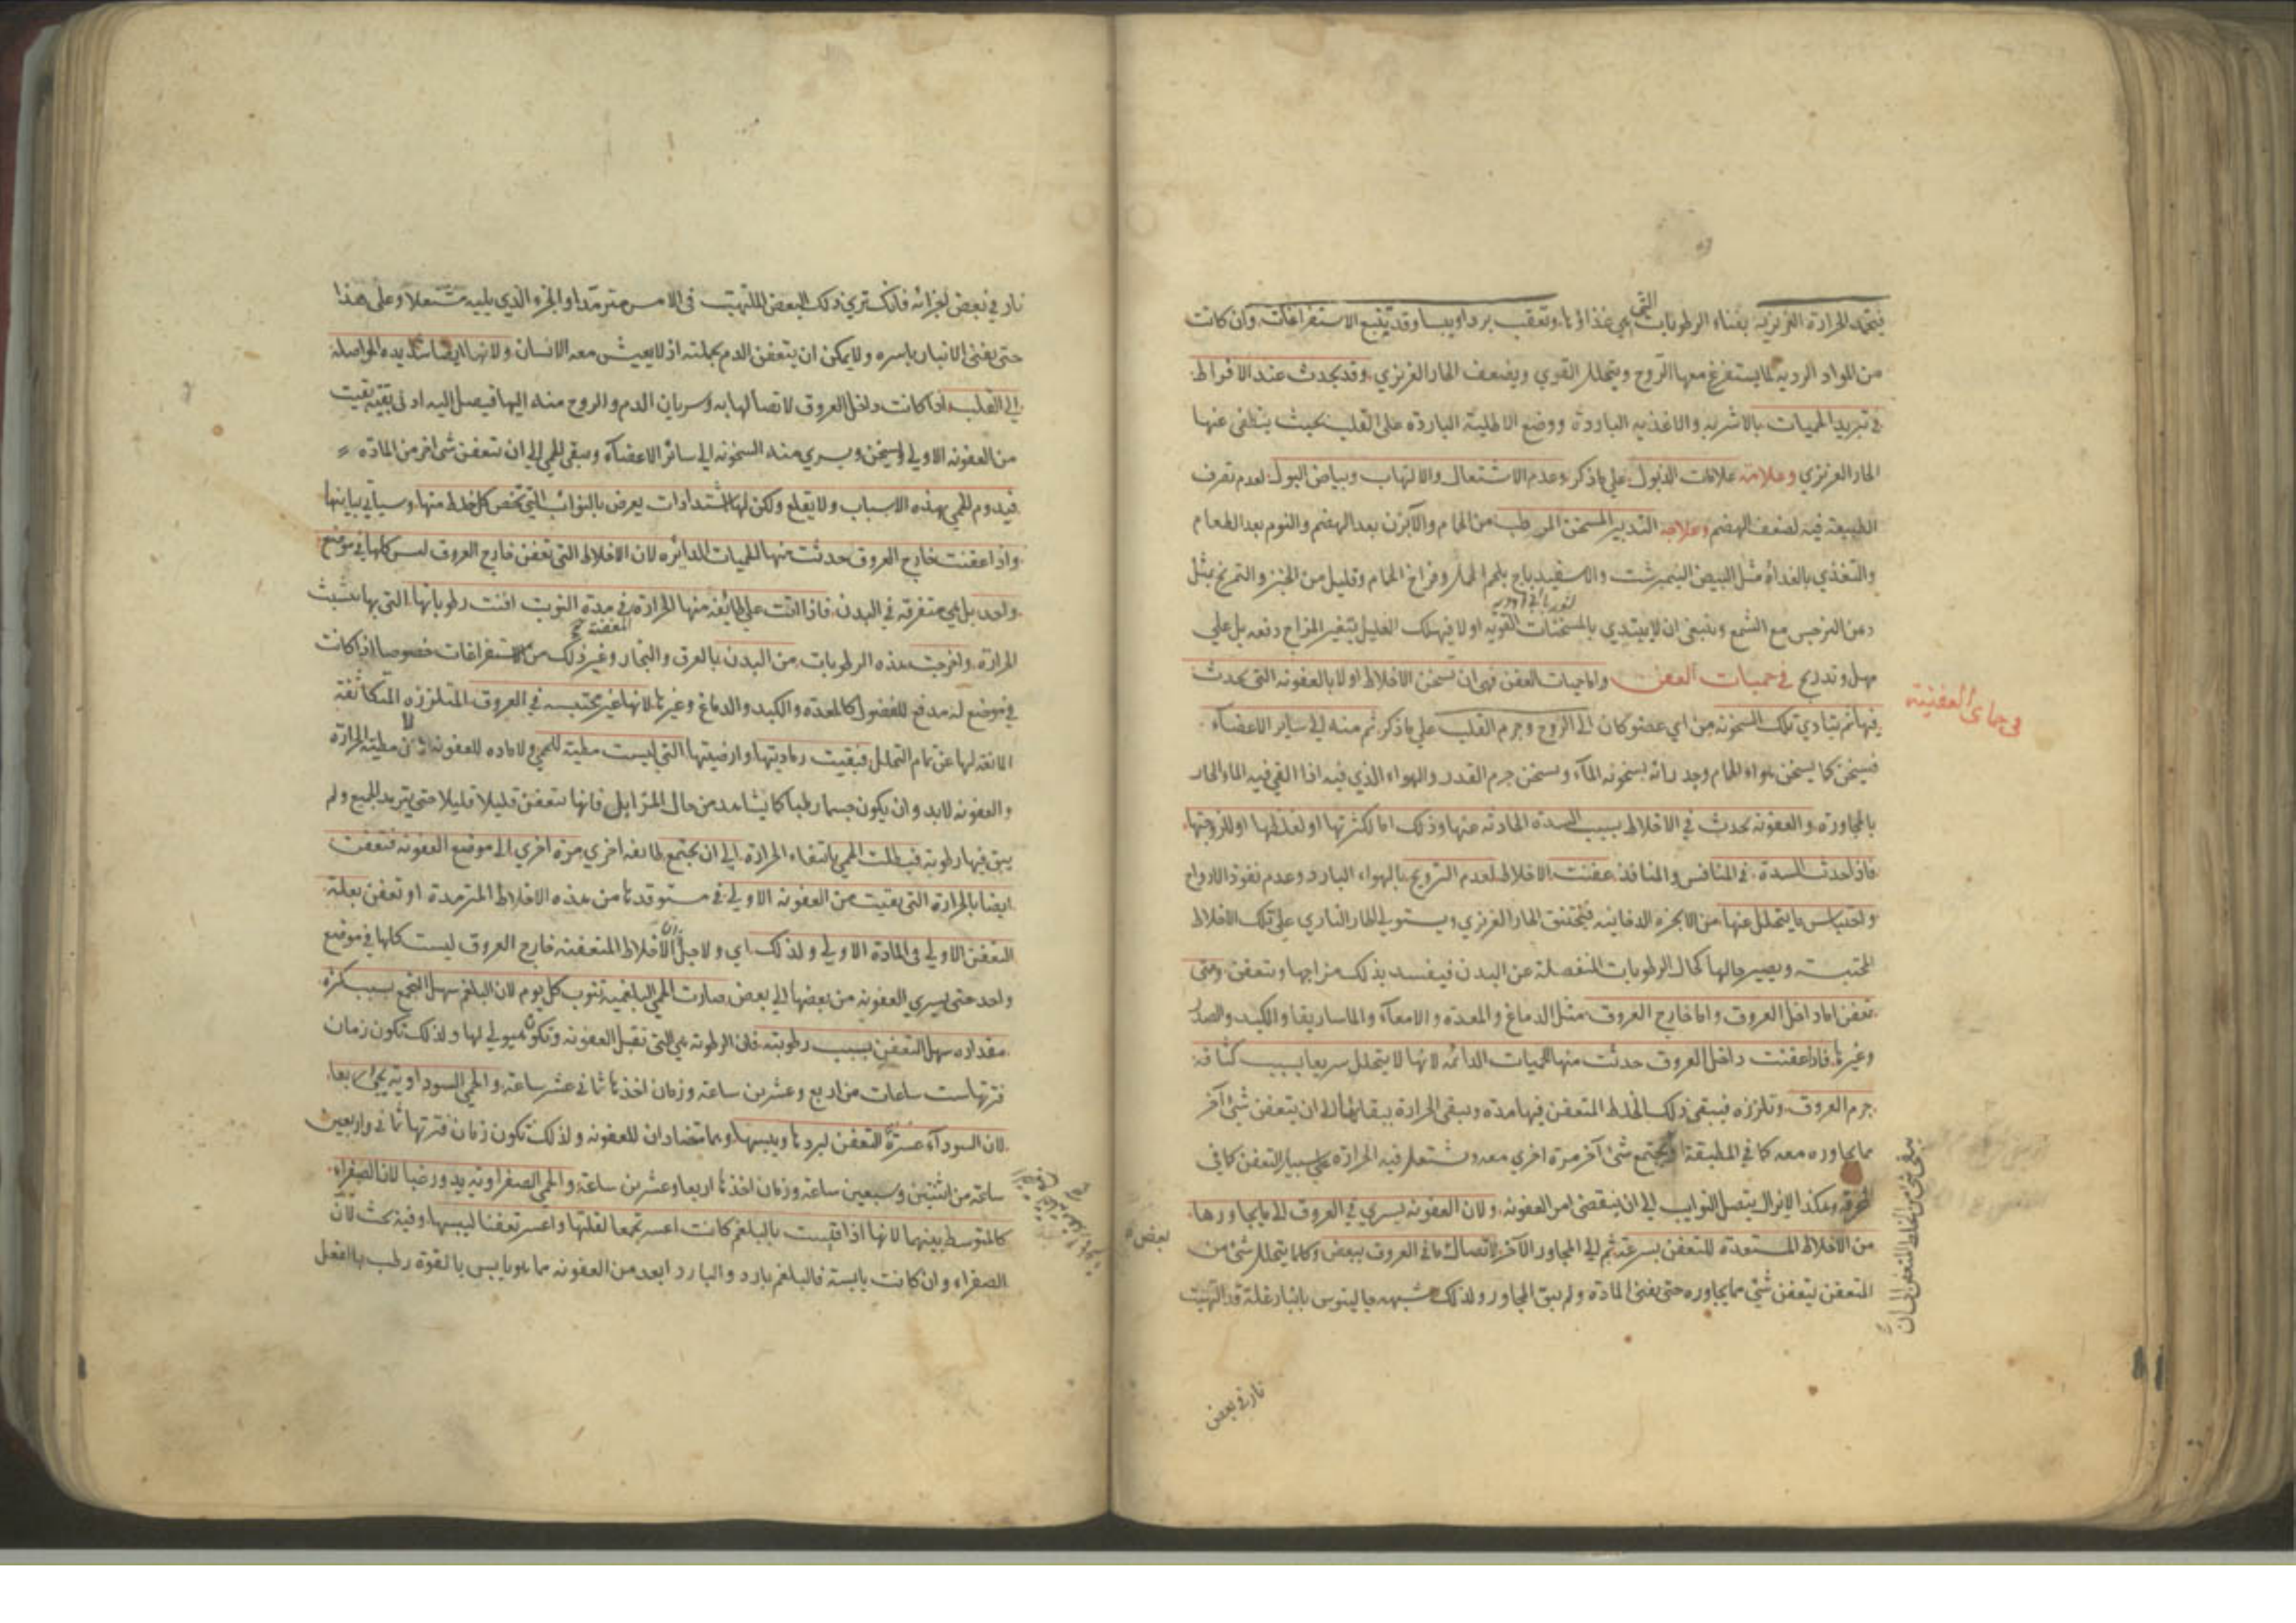 فيخمد الحرارة الغريزية بفناء الرطوبات التي هي غذاؤها وتعقب بردا ويبسا وقد يتبع الاستفراغات وان كانت
من المواد الردية لما يستفرغ معها الروح ويتحلل القوي ويضعف الحار الغريزي وقد يحدث عند الافراط
في تبريد الحميات بالاشربه والاغذيه الباردة ووضع الاطلية البارده على القلب بحيث ينطفى عنها
الحار الغريزي وعلامته علامات الذبول علي ما ذكر وعدم الاشتعال والالتهاب وبياض البول لعدم تصرف
الطبيعة فيه لضعف الهضم وعلاجه التدبير المسخن المرطب من الحمام والآبزن بعد الهضم والنوم بعد الطعام
والتغذي بالغداء مثل البيض النيمبرشت والاسفيدباج بلحم الحمل وفراخ الحمام وقليل من الخبز والتمريخ بمثل
دهن النرجس مع الشمع وينبغي ان لا يبتدي بالمسخنات القويه اولا فيهلك العليل بتغير المزاج دفعه بل علي
مهل وتدريج في حميات العفن واما حميات العفن فهى ان تسخن الاخلاط اولا بالعفونه التى تحدث
في حماى العفنية
فيها ثم يتادي تلك السخونه من اي عضو كان الى الروح وجرم القلب علي ما ذكر ثم منه الي ساير الاعضاء
فيسخن كما يسخن هواء الحمام وجدرانه بسخونه الماء ويسخن جرم القدر والهواء الذي فيه اذا القي فيه الماء الحار
بالمجاورة والعفونه تحدث في الاخلاط بسبب السدة الحادثه عنها وذلك اما لكثرتها او لغلظها او للزوجتها
فاذا حدثت السدة في المنافس والمنافذ عفنت الاخلاط لعدم الترويح بالهواء البارد وعدم نفوذ الارواح
واحتباس ما يتحلل عنها من الابخره الدخانيه فيختنق الحار الغريزي ويستولي الحار الناري علي تلك الاخلاط
المحتبسة ويصير حالها كحال الرطوبات المنفصلة عن البدن فيفسد بذلك مزاجها ويتعفن ومتى
تعفن اما داخل العروق واما خارج العروق مثل الدماغ والمعدة والامعاء والماساريقا والكبد والصدر
وغيرها فاذا عفنت داخل العروق حدثت منها الحميات الدائمه لانها لا يتحلل سريعا بسبب كثافه
جرم العروق وتلززه فيبقى ذلك الخلط المتعفن فيها مدة ويبقى الحرارة ببقائها الى ان يتعفن شئ آخر
مما يجاوره معه كما في المطبقة او يجتمع شئ آخر مرة اخري معه ويشتعل فيه الحرارة علي سبيل التعفن كما في
المحرقه وهكذا لا يزال يتصل النوايب الي ان ينقضى امر العفونه ولان العفونه يسري في العروق الى ما يجاورها
من الاخلاط المستعدة للتعفن بسرعة ثم الي المجاور الآخر لاتصال ما في العروق ببعض وكلما يتحلل شئ من
المتعفن يتعفن شئ مما يجاوره حتى يفنى المادة ولم يبق المجاور ولذلك شبهه جالينوس بانبار غلة قد التهبت
نار في بعض
نار في بعض اجزائه فانك تري ذلك البعض الملتهب فى الامس مترمدا والجزء الذي يليه مشتعلا وعلى هذا
حتى يفنى الانبار باسره ولا يمكن ان يتعفن الدم بجملته اذ لا يعيش معه الانسان ولانها ايضا شديده المواصلة
الى القلب اذا كانت داخل العروق لاتصالها به وسريان الدم والروح منه اليها فيصل اليه ادنى بقية بقيت
من العفونه الاولي ويسخن ويسري منه السخونه الي سائر الاعضاء ويبقى الحمي الي ان يتعفن شئ اخر من المادة
فيدوم الحمي بهذه الاسباب ولا يقلع ولكن لها اشتدادات يعرض بالنوائب التي تخص كل خلط منها وسياتي بيانها
واذا عفنت خارج العروق حدثت منها الحميات الدائره لان الاخلاط التى تعفن خارج العروق ليس كلها في موضع
واحد بل هي متفرقه في البدن فاذا اتت علي طائفة منها الحرارة في مدة النوبة افنت رطوباتها التى بها تتشبث
الحرارة واخرجت هذه الرطوبات من البدن بالعرق والبخار وغير ذلك من الاستفراغات خصوصا اذا كانت
في موضع له مدفع للفضول كالمعدة والكبد والدماغ وغيرها لانها غير محتبسه في العروق المتلززه المتكاثفة
المانعه لها عن تمام التحلل فبقيت رماديتها وارضيتها التي ليست مطية للحمي ولا ماده للعفونه لان مطية الحرارة
والعفونه لابد وان يكون جسما رطبا كما يشاهد من حال المزابل فانها تتعفن قليلا قليلا حتى يترمد الجميع ولم
يبق فيها رطوبه فبطلت الحمي بانتفاء الحرارة الي ان يجتمع طائفه اخري مرة اخري الى موضع العفونه فتعفنت
ايضا بالحرارة التى بقيت من العفونه الاولي في مستوقدها من هذه الاخلاط المترمدة او تعفن بعلة
التعفن الاولي فى المادة الاولي ولذلك اي ولاجل ان الاخلاط المتعفنه خارج العروق ليست كلها في موضع
واحد حتى يسري العفونه من بعضها الي بعض صارت الحمي البلغميه تنوب كل يوم لان البلغم سهل التجمع بسبب كثرة
مقداره سهل التعفن بسبب رطوبته فان الرطوبه هي التى تقبل العفونه وتكون هيولي لها ولذلك تكون زمان
فترتها ست ساعات من اربع وعشرين ساعة وزمان اخذها ثمانى عشر ساعة والحمي السوداوية يجئ ربعا
لان السوداء عسرة التعفن لبردها ويبسها وهما متضادان للعفونه ولذلك تكون زمان فترتها ثمانى واربعين
ساعة من اثنتين وسبعين ساعة وزمان اخذها اربعا وعشرين ساعة والحمي الصفراويه يدور غبا لان الصفراء
كالمتوسط بينهما لانها اذا قيست بالبلغم كانت اعسر تجمعا لقلتها واعسر تعفنا ليبسها وفيه بحث لان
الصفراء وان كانت يابسة فالبلغم بارد والبارد ابعد من العفونه مما هو يابس بالقوة رطب بالفعل